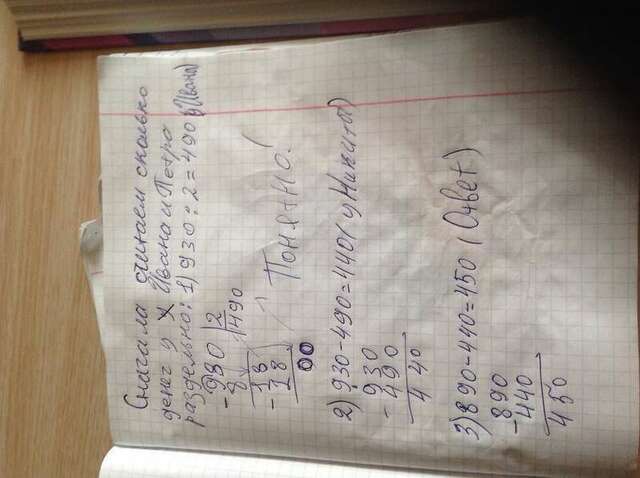 Сначала считаем сколько
денег у Ивана и Петра
раздельно: 1) 930 : 2 = 490 (у Ивана)
- 980 | 2
8 | 490
- 18
18
00
Понятно!
2) 930 - 490 = 440 ( у Никиты)
- 930
490
440
3) 890 - 440 = 450 ( Ответ )
- 890
440
450